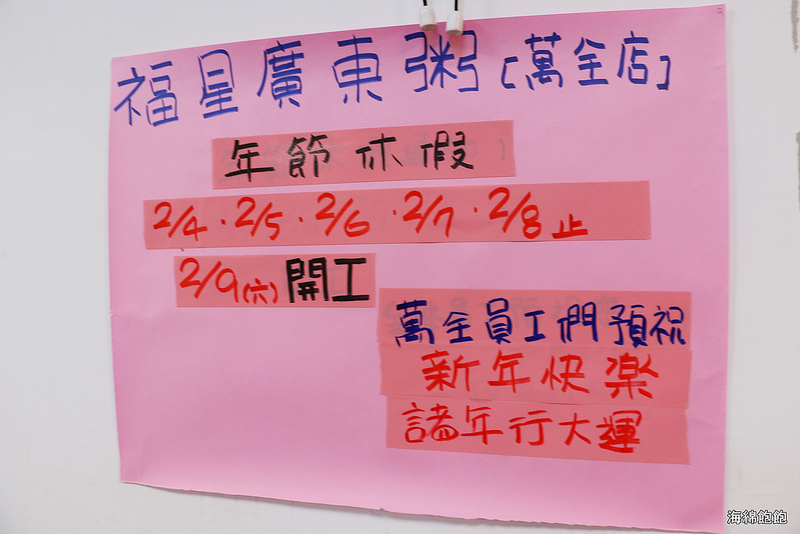 福星廣東粥[萬全店]
年節休假
2/4．2/5．2/6．2/7．2/8止
2/9(六)開工
萬全員工們預祝
新年快樂
諸年行大運
海綿飽飽